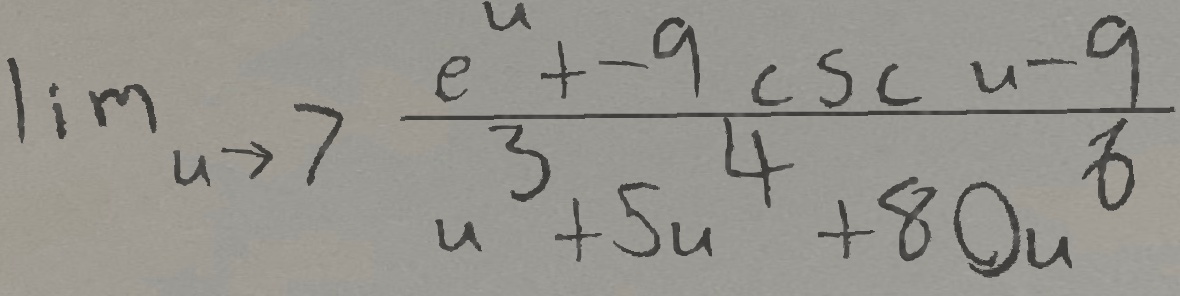 \lim_{u \to 7} \frac{e^u + -9 \csc u - 9}{u^3 + 5u^4 + 80u^6}